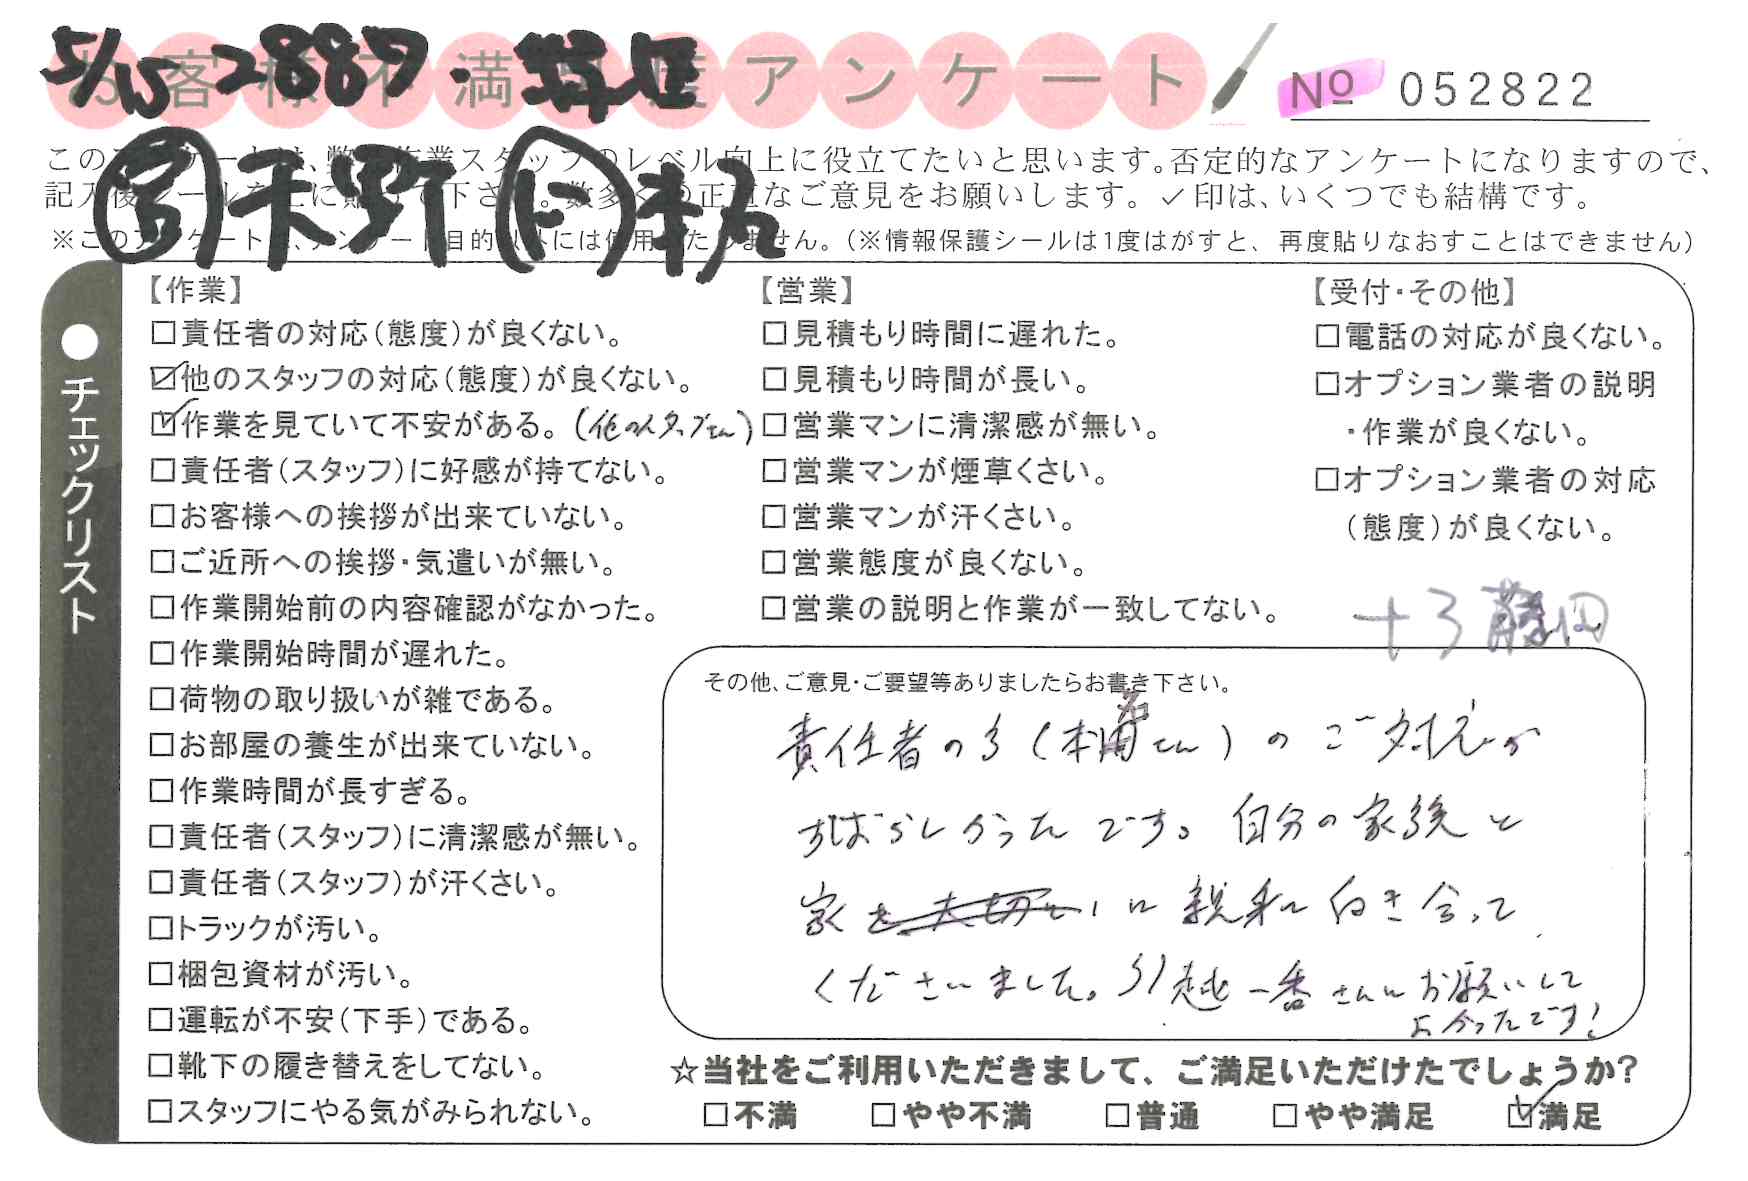 5/15 2887.
お客様不満足度アンケート
№ 052822
このアンケートは、弊社作業スタッフのレベル向上に役立てたいと思います。否定的なアンケートになりますので、
記入後シールを上に貼って下さい。数多くの正直なご意見をお願いします。✓印は、いくつでも結構です。
※このアンケートは、アンケート目的以外には使用しません。(※情報保護シールは1度はがすと、再度貼りなおすことはできません)
本名
チェックリスト
【作業】
□責任者の対応(態度)が良くない。
☑他のスタッフの対応(態度)が良くない。
☑作業を見ていて不安がある。(他のスタッフさん)
□責任者(スタッフ)に好感が持てない。
□お客様への挨拶が出来ていない。
□ご近所への挨拶・気遣いが無い。
□作業開始前の内容確認がなかった。
□作業開始時間が遅れた。
□荷物の取り扱いが雑である。
□お部屋の養生が出来ていない。
□作業時間が長すぎる。
□責任者(スタッフ)に清潔感が無い。
□責任者(スタッフ)が汗くさい。
□トラックが汚い。
□梱包資材が汚い。
□運転が不安(下手)である。
□靴下の履き替えをしてない。
□スタッフにやる気がみられない。
【営業】
□見積もり時間に遅れた。
□見積もり時間が長い。
□営業マンに清潔感が無い。
□営業マンが煙草くさい。
□営業マンが汗くさい。
□営業態度が良くない。
□営業の説明と作業が一致してない。
【受付・その他】
□電話の対応が良くない。
□オプション業者の説明
・作業が良くない。
□オプション業者の対応
(態度)が良くない。
+3 藤田
その他、ご意見・ご要望等ありましたらお書き下さい。
責任者の方(本名さん)のご対応が
すばらしかったです。自分の家族と
家に親身に向き合って
くださいました。引越一番さんにお願いして
よかったです!
☆当社をご利用いただきまして、ご満足いただけたでしょうか?
□不満 □やや不満 □普通 □やや満足 ☑満足